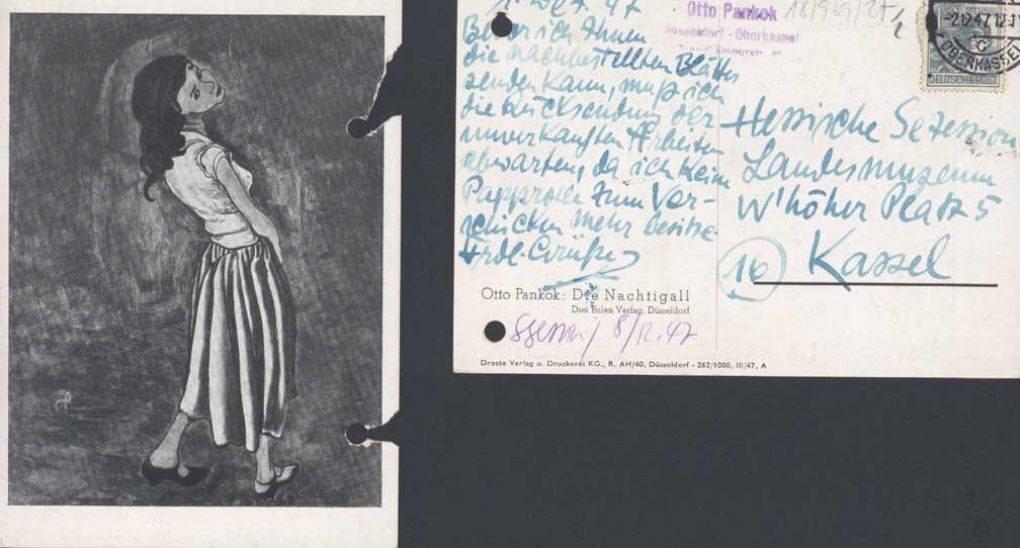 1. Dez. 47
Bevor ich Ihnen
die nachbestellten Blätter
senden kann, muß ich
die Rücksendung der
unverkauften Arbeiten
abwarten, da ich keine
Papprolle zum Ver-
schicken mehr besitze.
Frdl. Grüße
Otto Pankok
Düsseldorf - Oberkassel
-2.12.47.12-1
OBERKASSEL
DEUTSCHE POST
Hessische Sezession
Landesmuseum
W'höher Platz 5
16
Kassel
Otto Pankok: Die Nachtigall
Drei Eulen Verlag, Düsseldorf
8/12.47
Droste Verlag u. Druckerei KG., R. AH/40, Düsseldorf - 262/1000, III/47, A